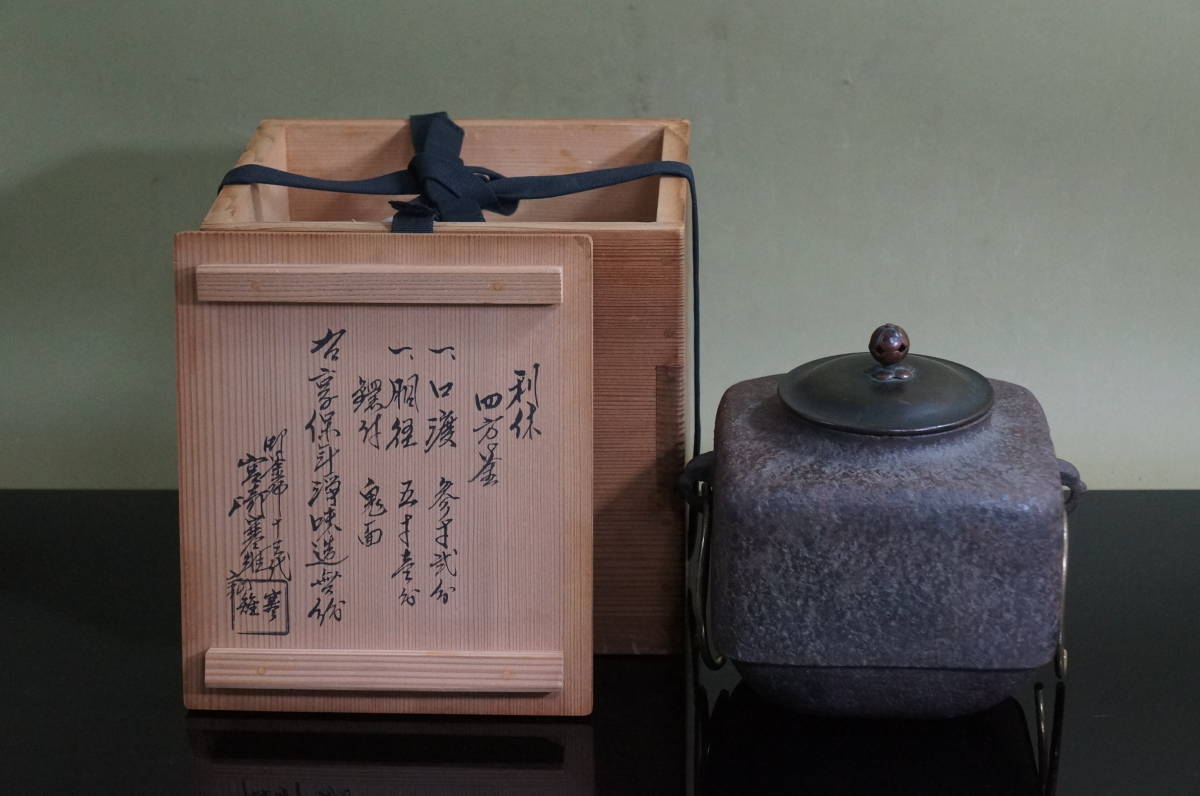 利休
四方釜
一、口渡 参寸弐分
一、胴径 五寸壱分
鐶付 鬼面
右享保年浄味造無紛
御釜師十三代
宮崎寒雉
寒雉